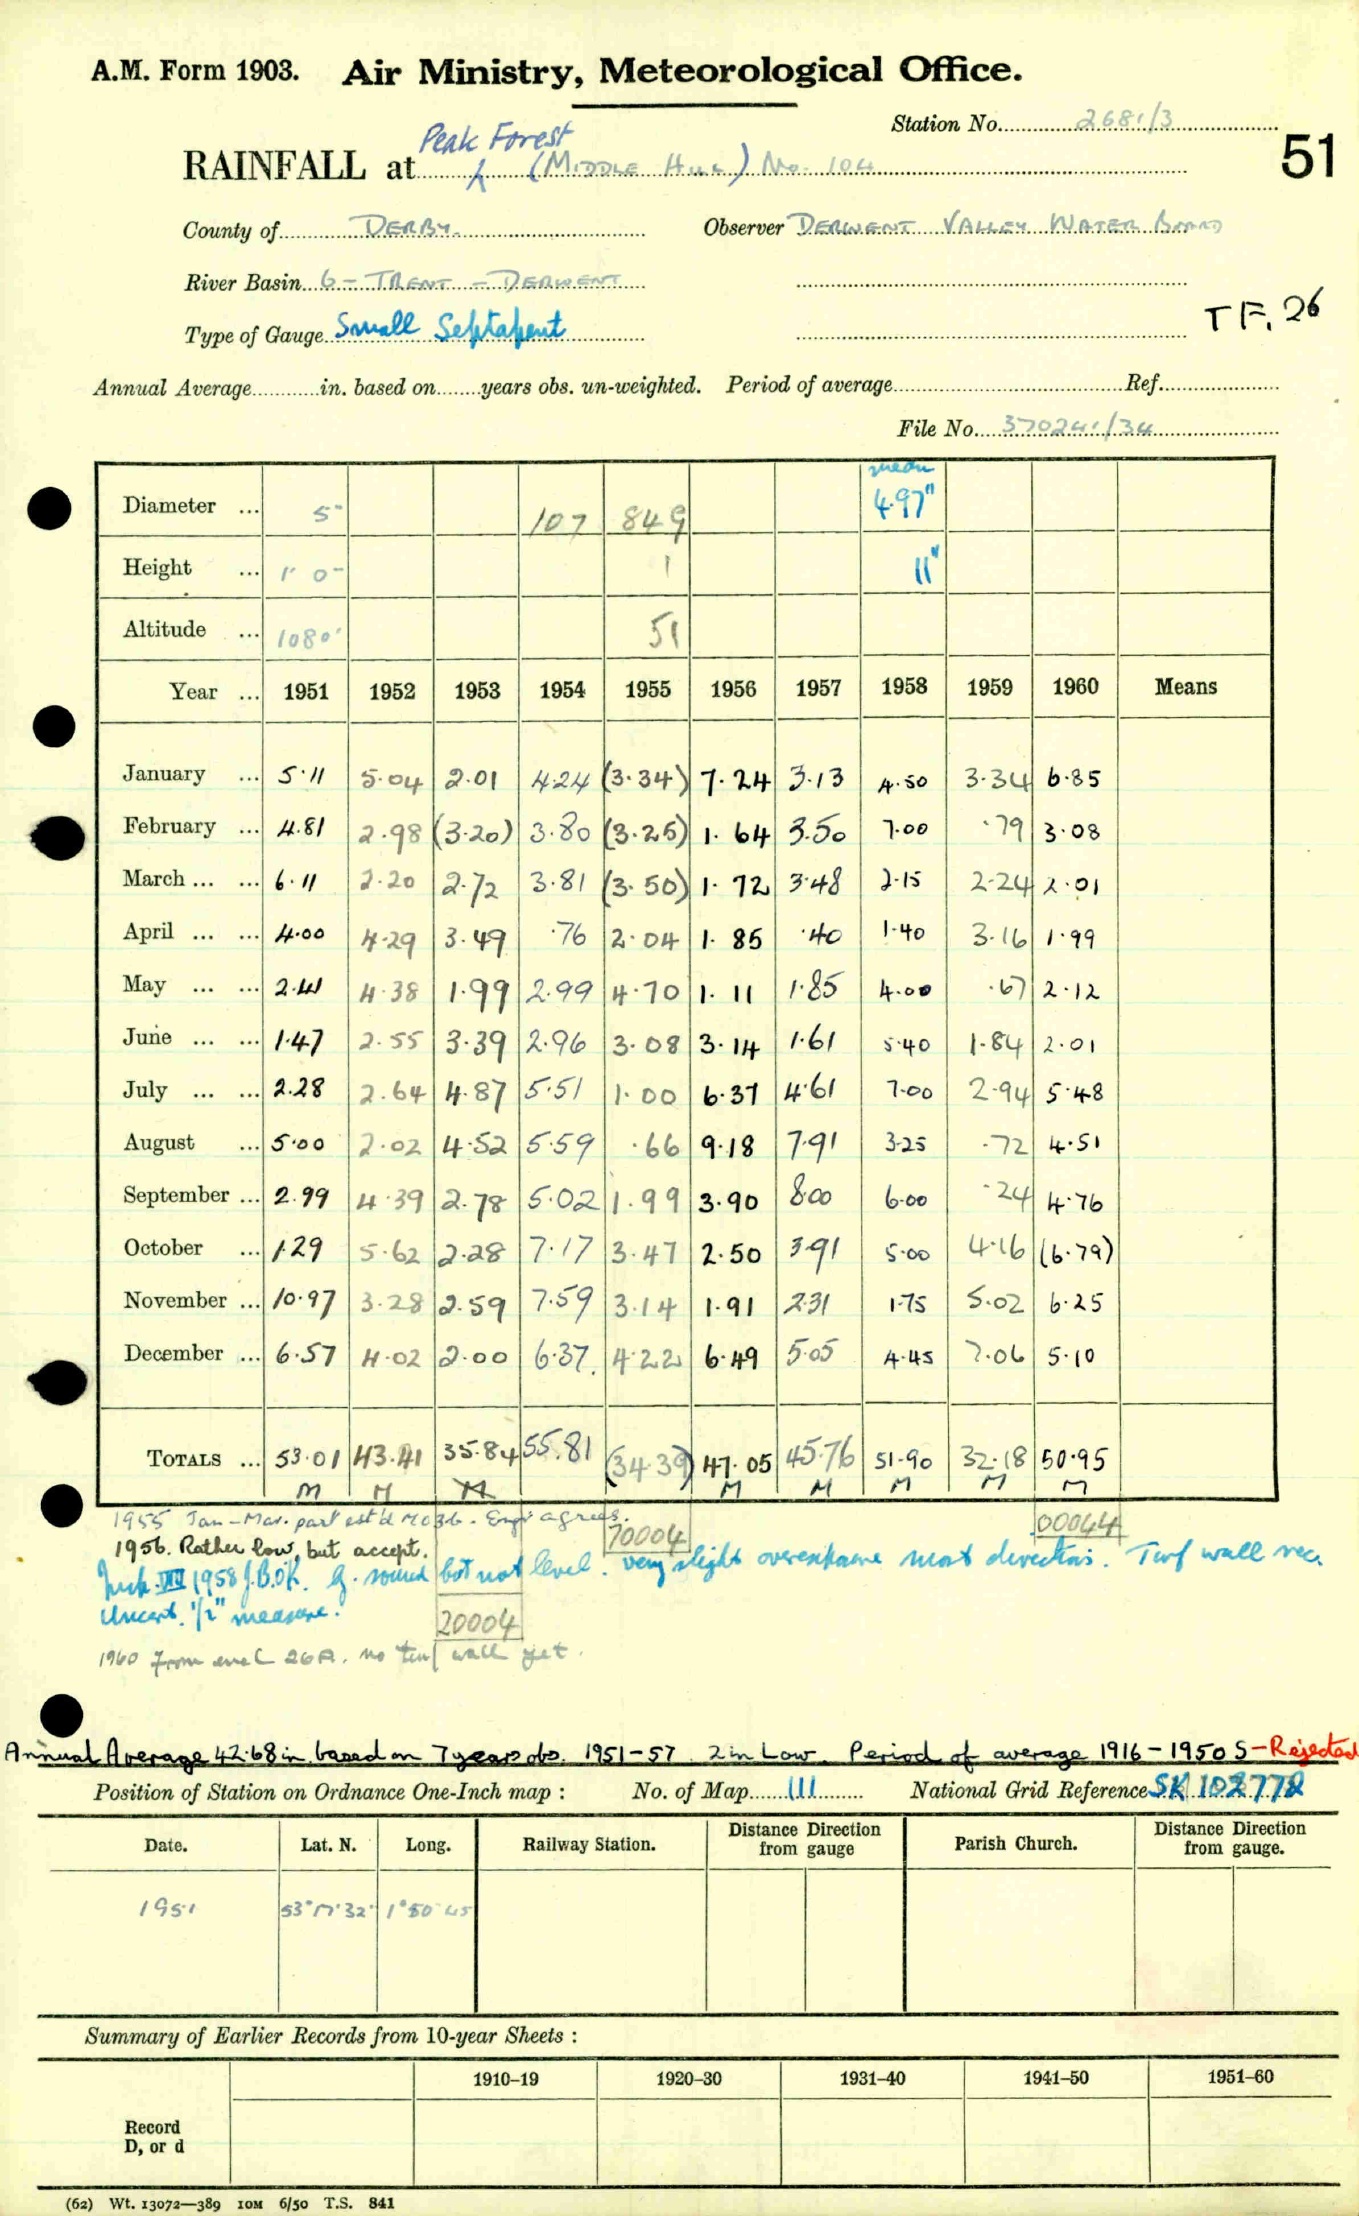 A.M. Form 1903. Air Ministry, Meteorological Office.
Station No. 2681/3
51
Peak Forest
RAINFALL at (MIDDLE HILL) No. 104
County of DERBY. Observer DERWENT VALLEY WATER BOARD
River Basin 6 - TRENT - DERWENT
Type of Gauge Small Septapent T F. 26
Annual Average in. based on years obs. un-weighted. Period of average Ref.
File No. 370241/34
mean
Diameter ... 5" 107 849 4.97"
Height ... 1' 0" 1 11"
Altitude ... 1080' 51
Year ... 1951 1952 1953 1954 1955 1956 1957 1958 1959 1960 Means
January ... 5.11 5.04 2.01 4.24 (3.34) 7.24 3.13 4.50 3.34 6.85
February ... 4.81 2.98 (3.20) 3.80 (3.25) 1.64 3.50 7.00 .79 3.08
March ... ... 6.11 2.20 2.72 3.81 (3.50) 1.72 3.48 2.15 2.24 2.01
April ... ... 4.00 4.29 3.49 .76 2.04 1.85 .40 1.40 3.16 1.99
May ... ... 2.41 4.38 1.99 2.99 4.70 1.11 1.85 4.00 .67 2.12
June ... ... 1.47 2.55 3.39 2.96 3.08 3.14 1.61 5.40 1.84 2.01
July ... ... 2.28 2.64 4.87 5.51 1.00 6.37 4.61 7.00 2.94 5.48
August ... 5.00 2.02 4.52 5.59 .66 9.18 7.91 3.25 .72 4.51
September ... 2.99 4.39 2.78 5.02 1.99 3.90 8.00 6.00 .24 4.76
October ... 1.29 5.62 2.28 7.17 3.47 2.50 3.91 5.00 4.16 (6.79)
November ... 10.97 3.28 2.59 7.59 3.14 1.91 2.31 1.75 5.02 6.25
December ... 6.57 4.02 2.00 6.37. 4.22 6.49 5.05 4.45 7.06 5.10
TOTALS ... 53.01 43.41 35.84 55.81 (34.39) 47.05 45.76 51.90 32.18 50.95
M M M M M M M M
1955 Jan - Mar. part est'd MO3b. Engr agrees.
70004 00044
1956. Rather low, but accept.
Insp. VIII 1958 J.B.OK. G. sound but not level. very slight overexposure most directions. Turf wall rec.
Uncert. 1/2" measure.
20004
1960 From encl 26A. no turf wall yet.
Annual Average 42.68 in. based on 7 years obs. 1951-57. 2 in Low. Period of average 1916-1950 S - Rejected
Position of Station on Ordnance One-Inch map : No. of Map 111 National Grid Reference SK 102772
Date. Lat. N. Long. Railway Station. Distance Direction from gauge Parish Church. Distance Direction from gauge.
1951 53° 17' 32" 1° 50' 45
Summary of Earlier Records from 10-year Sheets :
1910–19 1920–30 1931–40 1941–50 1951–60
Record
D, or d
(62) Wt. 13072—389 10M 6/50 T.S. 841